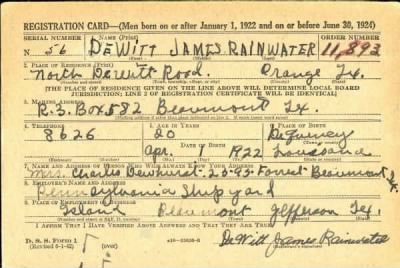 REGISTRATION CARD—(Men born on or after January 1, 1922 and on or before June 30, 1924)
SERIAL NUMBER 1. NAME (Print) ORDER NUMBER
N 56 DeWITT JAMES RAINWATER 11,893
(First) (Middle) (Last)
2. PLACE OF RESIDENCE (Print)
North DeWitt Road. Orange Tx.
(Number and street) (Town, township, village, or city) (County) (State)
[THE PLACE OF RESIDENCE GIVEN ON THE LINE ABOVE WILL DETERMINE LOCAL BOARD
JURISDICTION; LINE 2 OF REGISTRATION CERTIFICATE WILL BE IDENTICAL]
3. MAILING ADDRESS
R.3. Box 582 Beaumont Tx.
[Mailing address if other than place indicated on line 2. If same insert word same]
4. TELEPHONE 5. AGE IN YEARS 6. PLACE OF BIRTH
8626 20 DeQuincy
DATE OF BIRTH
Apr. 1922
(Exchange) (Number) (Mo.) (Day) (Yr.) (State or country)
7. NAME AND ADDRESS OF PERSON WHO WILL ALWAYS KNOW YOUR ADDRESS
Mrs. Charles Dewhurst-2095 Forrest-Beaumont Tx.
8. EMPLOYER'S NAME AND ADDRESS
Pennsylvania Shipyard
9. PLACE OF EMPLOYMENT OR BUSINESS
Island Beaumont Jefferson Tex.
(Number and street or R. F. D. number) (Town) (County) (State)
I AFFIRM THAT I HAVE VERIFIED ABOVE ANSWERS AND THAT THEY ARE TRUE.
D. S. S. Form 1
(Revised 6-1-42) (over) DeWitt James Rainwater
(Registrant's signature)